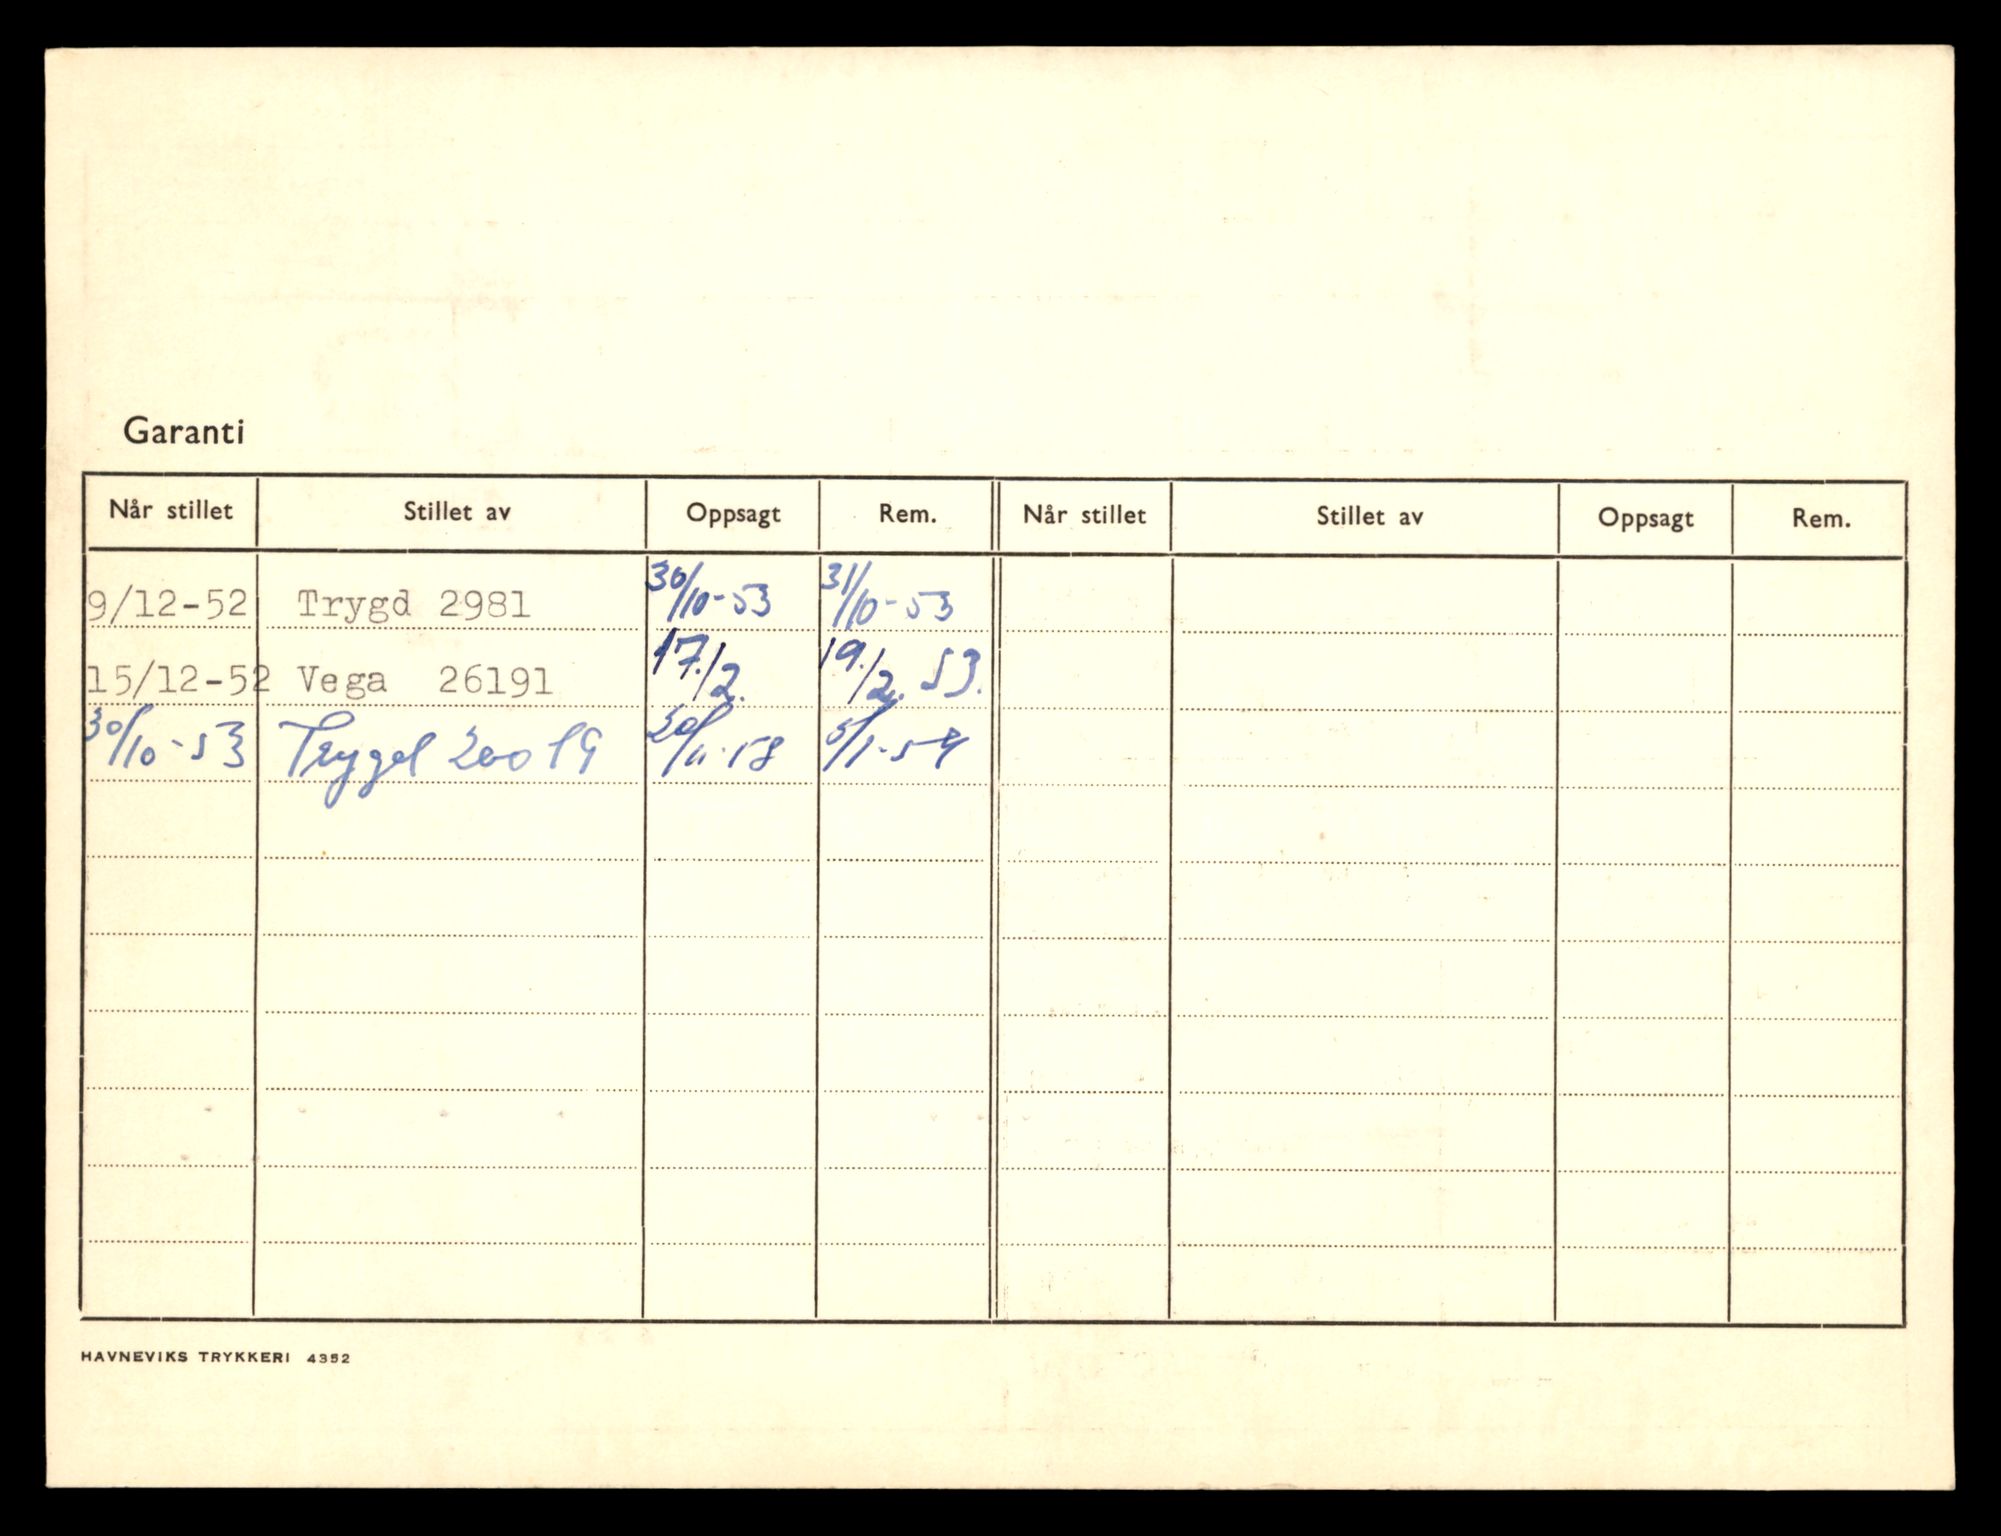 Garanti
Når stillet Stillet av Oppsagt Rem. Når stillet Stillet av Oppsagt Rem.
9/12-52 Trygd 2981 30/10-53 31/10-53
15/12-52 Vega 26191 17./2. 19./2. 53.
30/10-53 Trygd 20019 /11-58 5/1-59
HAVNEVIKS TRYKKERI 4352